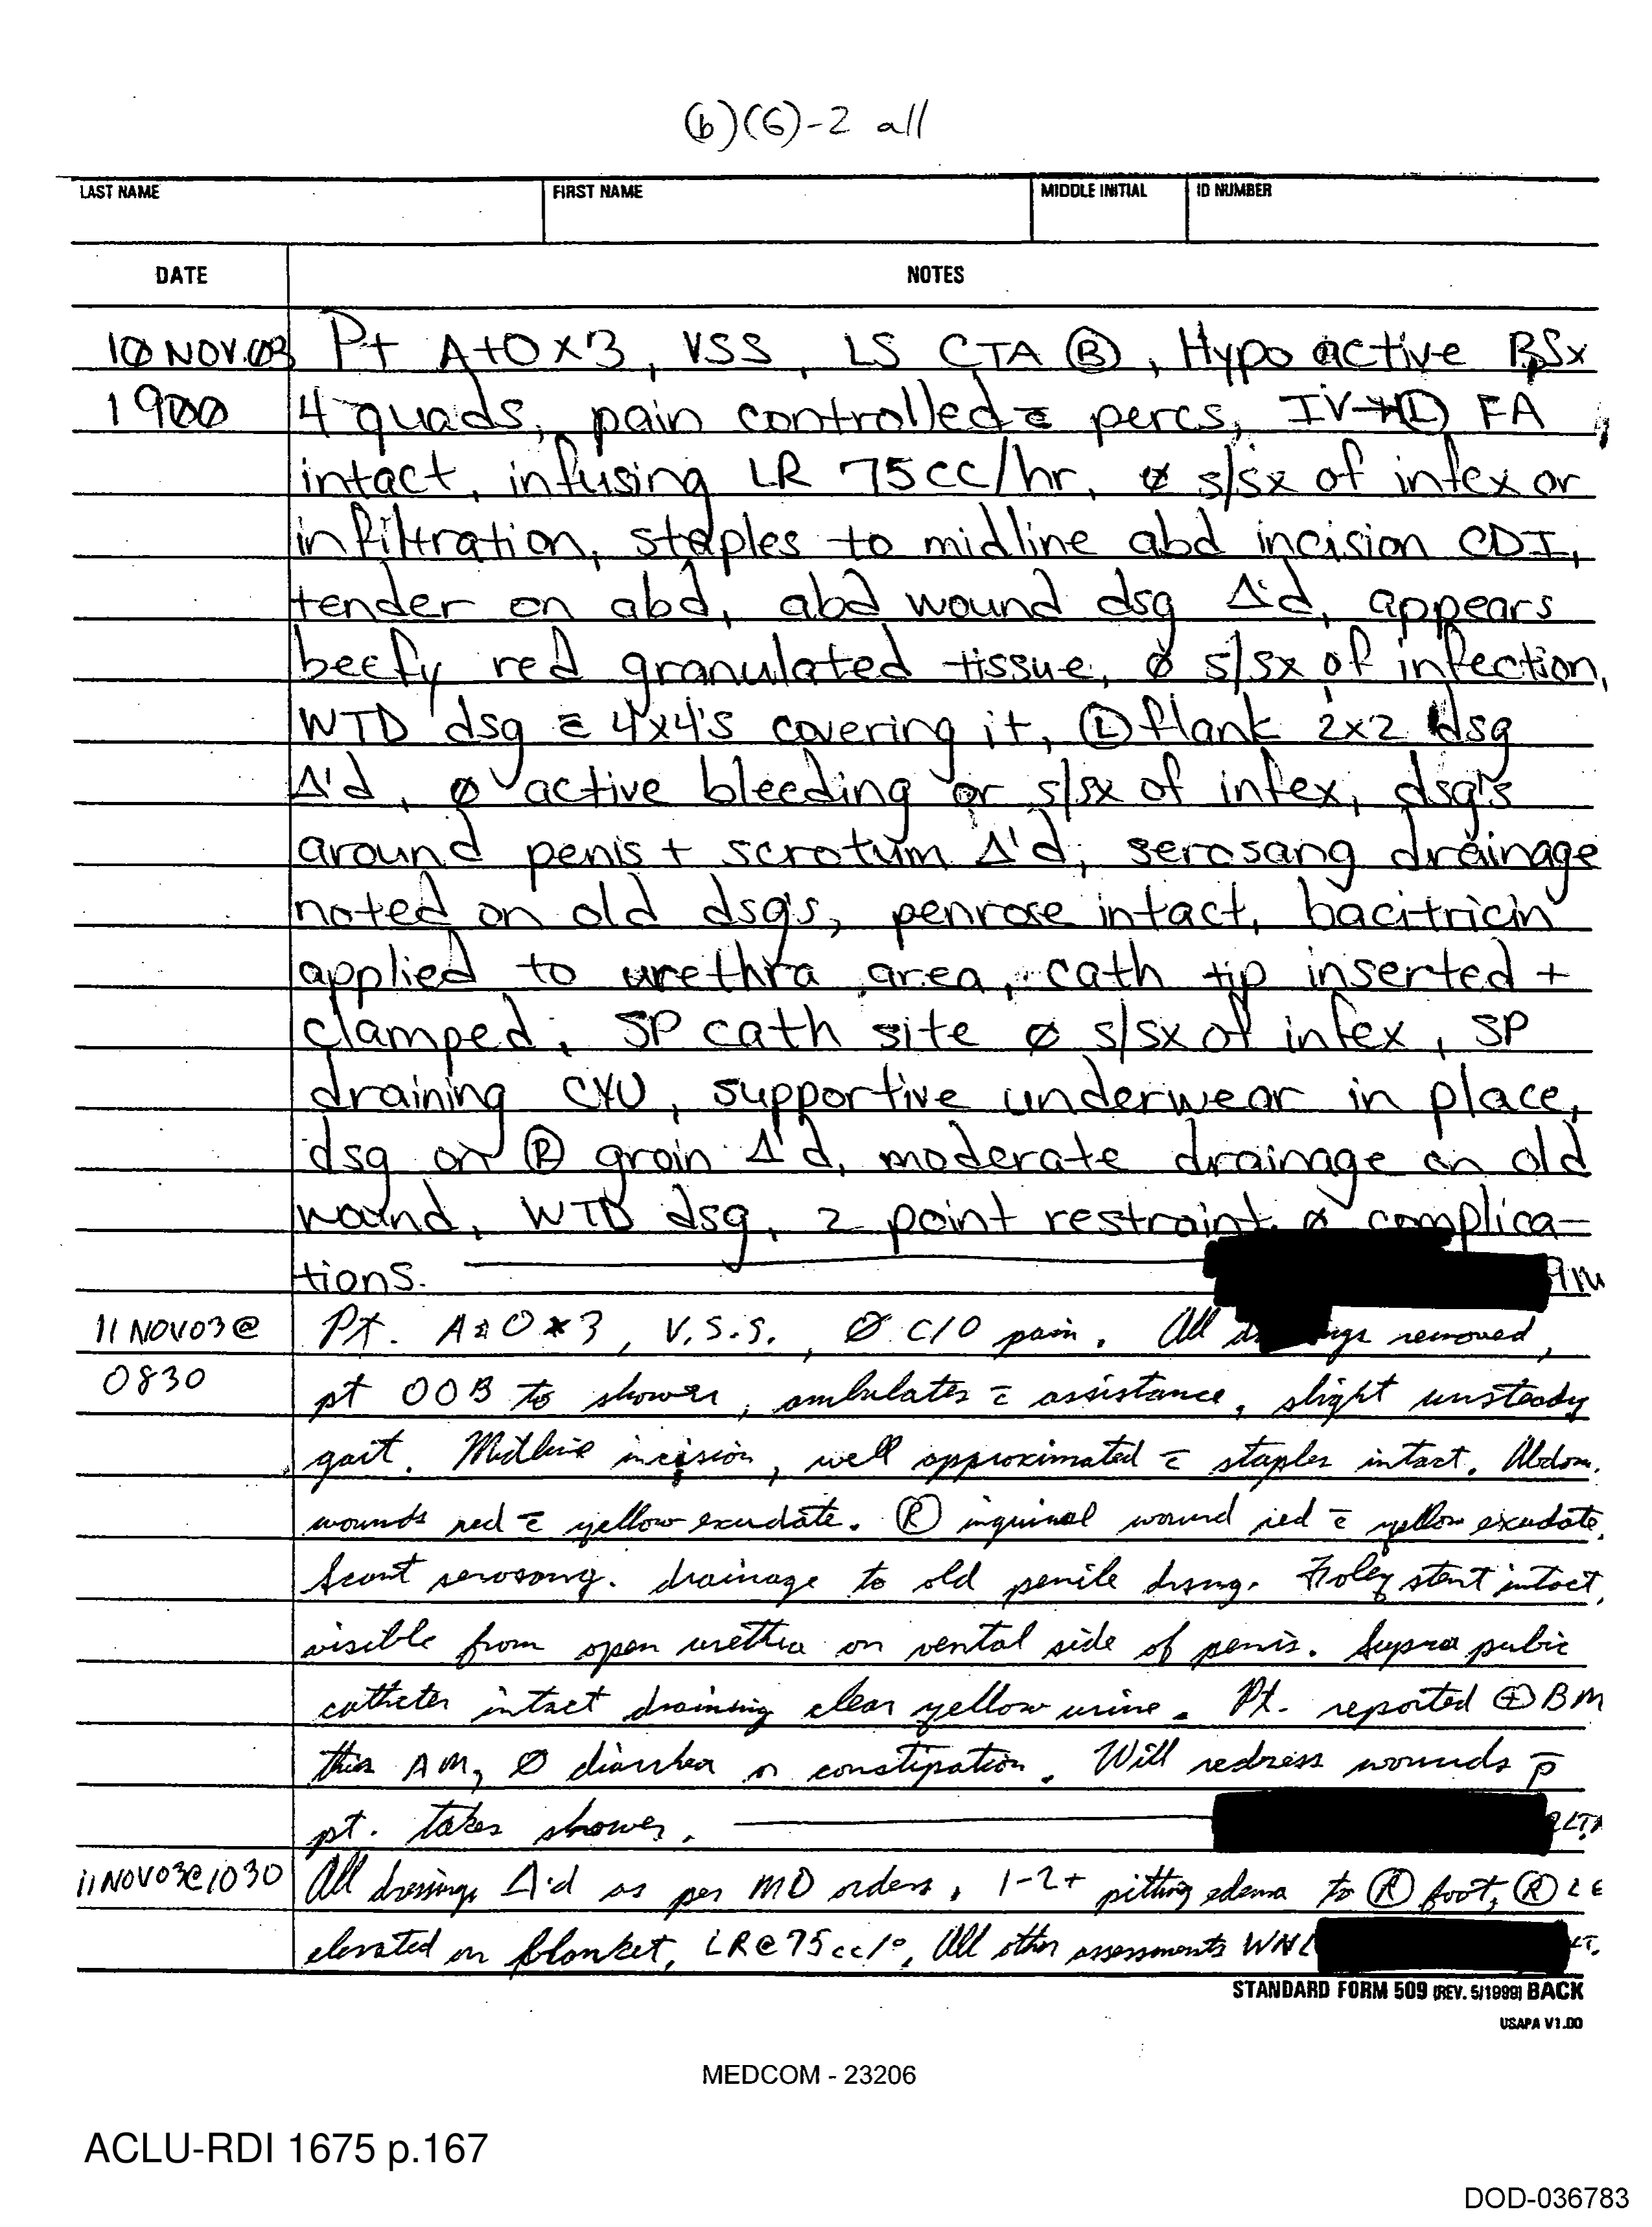 (b)(6)-2 all
LAST NAME FIRST NAME MIDDLE INITIAL ID NUMBER
DATE NOTES
10 NOV.03 Pt A+O x 3, VSS, LS CTA Ⓑ, Hypoactive BSx
1900 4 quads, pain controlled c̄ percs, IV→Ⓛ FA
intact, infusing LR 75cc/hr, ø s/sx of infex or
infiltration, staples to midline abd incision CDI,
tender on abd, abd wound dsg Δ'd, appears
beefy red granulated tissue, ø s/sx of infection,
WTD dsg c̄ 4x4's covering it, Ⓛ flank 2x2 dsg
Δ'd, ø active bleeding or s/sx of infex, dsg's
around penis + scrotum Δ'd, serosang drainage
noted on old dsg's, penrose intact, bacitricin
applied to urethra area, cath tip inserted +
clamped, SP cath site ø s/sx of infex, SP
draining CYU, supportive underwear in place,
dsg on Ⓡ groin Δ'd, moderate drainage on old
wound, WTD dsg, 2 point restraint ø complica-
tions.
11 NOV03@ Pt. A+O x 3, V.S.S., Ø c/o pain. All removed,
0830 pt OOB to shower, ambulates c̄ assistance, slight unsteady
gait. Midline incision, well approximated c̄ staples intact. Abdom.
wounds red c̄ yellow exudate. Ⓡ inguinal wound red c̄ yellow exudate.
Scant serosang. drainage to old penile drsng. Foley stent intact,
visible from open urethra on vental side of penis. Supra pubic
catheter intact draining clear yellow urine. Pt. reported ⊕ BM
this AM, Ø diarrhea or constipation. Will redress wounds p̄
pt. takes shower.
11NOV03@1030 All dressings Δ'd as per MD orders. 1-2+ pitting edema to Ⓡ foot, Ⓡ LE
elevated on blanket, LR@75cc/°, All other assessments WNL
STANDARD FORM 509 (REV. 5/1999) BACK
USAPA V1.00
MEDCOM - 23206
ACLU-RDI 1675 p.167
DOD-036783